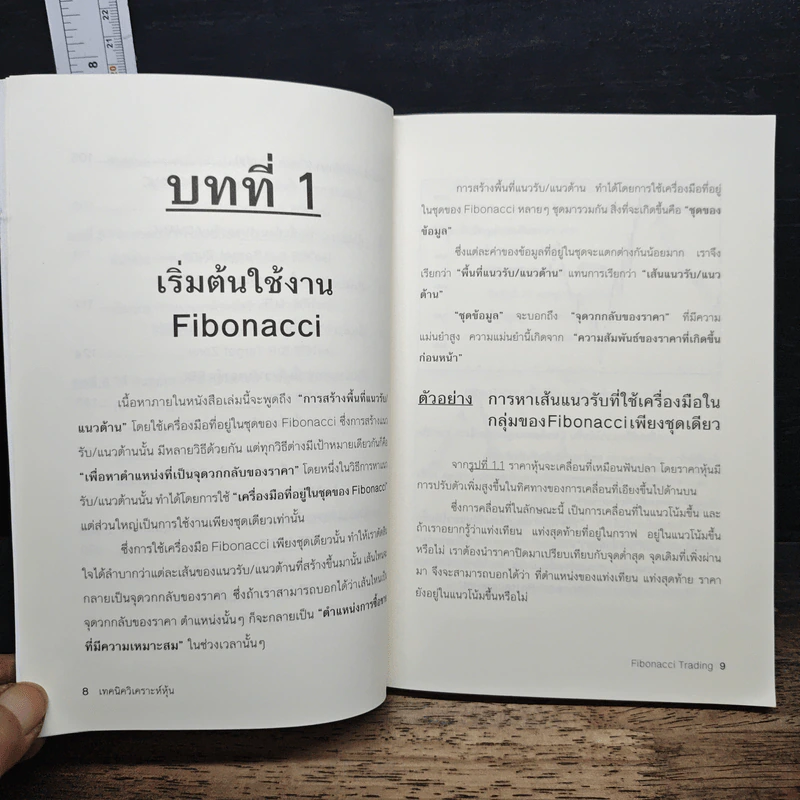 8
22
21
20
บทที่ 1
เริ่มต้นใช้งาน
Fibonacci
เนื้อหาภายในหนังสือเล่มนี้จะพูดถึง "การสร้างพื้นที่แนวรับ/
แนวต้าน" โดยใช้เครื่องมือที่อยู่ในชุดของ Fibonacci ซึ่งการสร้างแนว
รับ/แนวต้านนั้น มีหลายวิธีด้วยกัน แต่ทุกวิธีต่างมีเป้าหมายเดียวกันก็คือ
"เพื่อหาตำแหน่งที่เป็นจุดวกกลับของราคา" โดยหนึ่งในวิธีการหาแนว
รับ/แนวต้านนั้น ทำได้โดยการใช้ "เครื่องมือที่อยู่ในชุดของ Fibonacci"
แต่ส่วนใหญ่เป็นการใช้งานเพียงชุดเดียวเท่านั้น
ซึ่งการใช้เครื่องมือ Fibonacci เพียงชุดเดียวนั้น ทำให้เราตัดสิน
ใจได้ลำบากว่าแต่ละเส้นของแนวรับ/แนวต้านที่สร้างขึ้นมานั้น เส้นไหนจะ
กลายเป็นจุดวกกลับของราคา ซึ่งถ้าเราสามารถบอกได้ว่าเส้นไหนเป็น
จุดวกกลับของราคา ตำแหน่งนั้นๆ ก็จะกลายเป็น "ตำแหน่งการซื้อขาย
ที่มีความเหมาะสม" ในช่วงเวลานั้นๆ
8 เทคนิควิเคราะห์หุ้น
การสร้างพื้นที่แนวรับ/แนวต้าน ทำได้โดยการใช้เครื่องมือที่อยู่
ในชุดของ Fibonacci หลายๆ ชุดมารวมกัน สิ่งที่จะเกิดขึ้นคือ "ชุดของ
ข้อมูล"
ซึ่งแต่ละค่าของข้อมูลที่อยู่ในชุดจะแตกต่างกันน้อยมาก เราจึง
เรียกว่า "พื้นที่แนวรับ/แนวต้าน" แทนการเรียกว่า "เส้นแนวรับ/แนว
ต้าน"
"ชุดข้อมูล" จะบอกถึง "จุดวกกลับของราคา" ที่มีความ
แม่นยำสูง ความแม่นยำนี้เกิดจาก "ความสัมพันธ์ของราคาที่เกิดขึ้น
ก่อนหน้า"
ตัวอย่าง การหาเส้นแนวรับที่ใช้เครื่องมือใน
กลุ่มของ Fibonacci เพียงชุดเดียว
จากรูปที่ 1.1 ราคาหุ้นจะเคลื่อนที่เหมือนฟันปลา โดยราคาหุ้นมี
การปรับตัวเพิ่มสูงขึ้นในทิศทางของการเคลื่อนที่เอียงขึ้นไปด้านบน
ซึ่งการเคลื่อนที่ในลักษณะนี้ เป็นการเคลื่อนที่ในแนวโน้มขึ้น และ
ถ้าเราอยากรู้ว่าแท่งเทียน แท่งสุดท้ายที่อยู่ในกราฟ อยู่ในแนวโน้มขึ้น
หรือไม่ เราต้องนำราคาปิดมาเปรียบเทียบกับจุดต่ำสุด จุดเดิมที่เพิ่งผ่าน
มา จึงจะสามารถบอกได้ว่า ที่ตำแหน่งของแท่งเทียน แท่งสุดท้าย ราคา
ยังอยู่ในแนวโน้มขึ้นหรือไม่
Fibonacci Trading 9